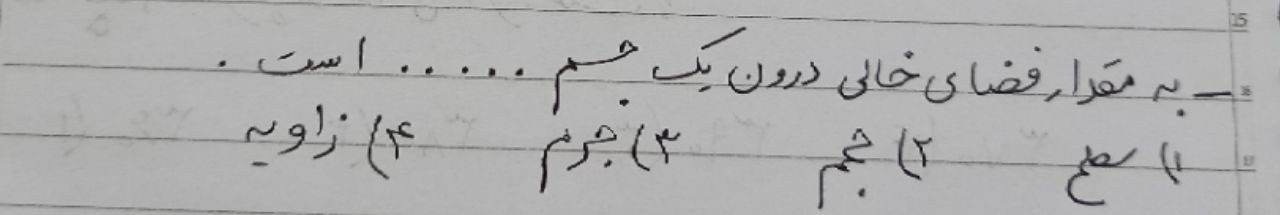 – به مقدار فضای خالی درون یک جسم ..... است .
۱) سطح ۲) حجم ۳) جرم ۴) زاویه